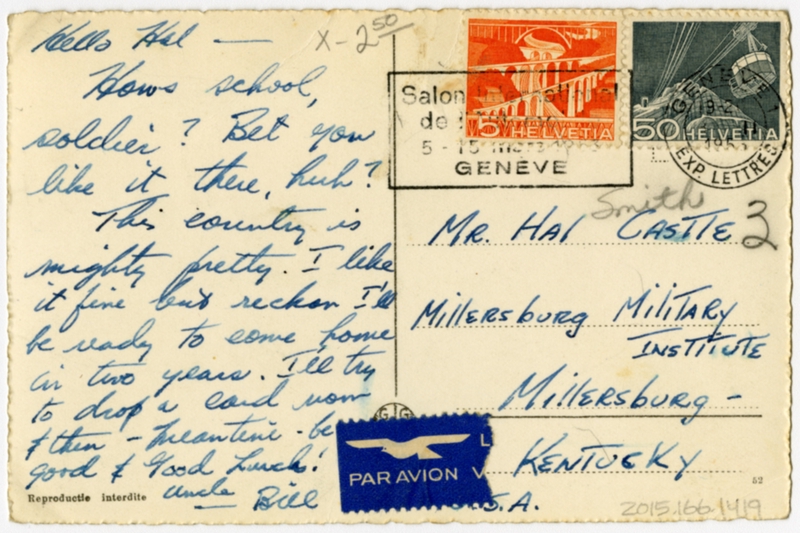 Hello Hal —
Hows school,
soldier? Bet you
like it there, huh?
This country is
mighty pretty. I like
it fine but reckon I'll
be ready to come home
in two years. I'll try
to drop a card now
& then - meantime - be
good & Good Luck!
Uncle Bill
Reproductie interdite
X - 2.50
5 HELVETIA
50 HELVETIA
Salon International
de
5 - 15 mars
GENÈVE
GENÈVE 1
EXP. LETTRES
Smith
3
Mr. Hal Castle
Millersburg Military
Institute
Millersburg -
Kentucky
U.S.A.
PAR AVION
52
2015.166.1419